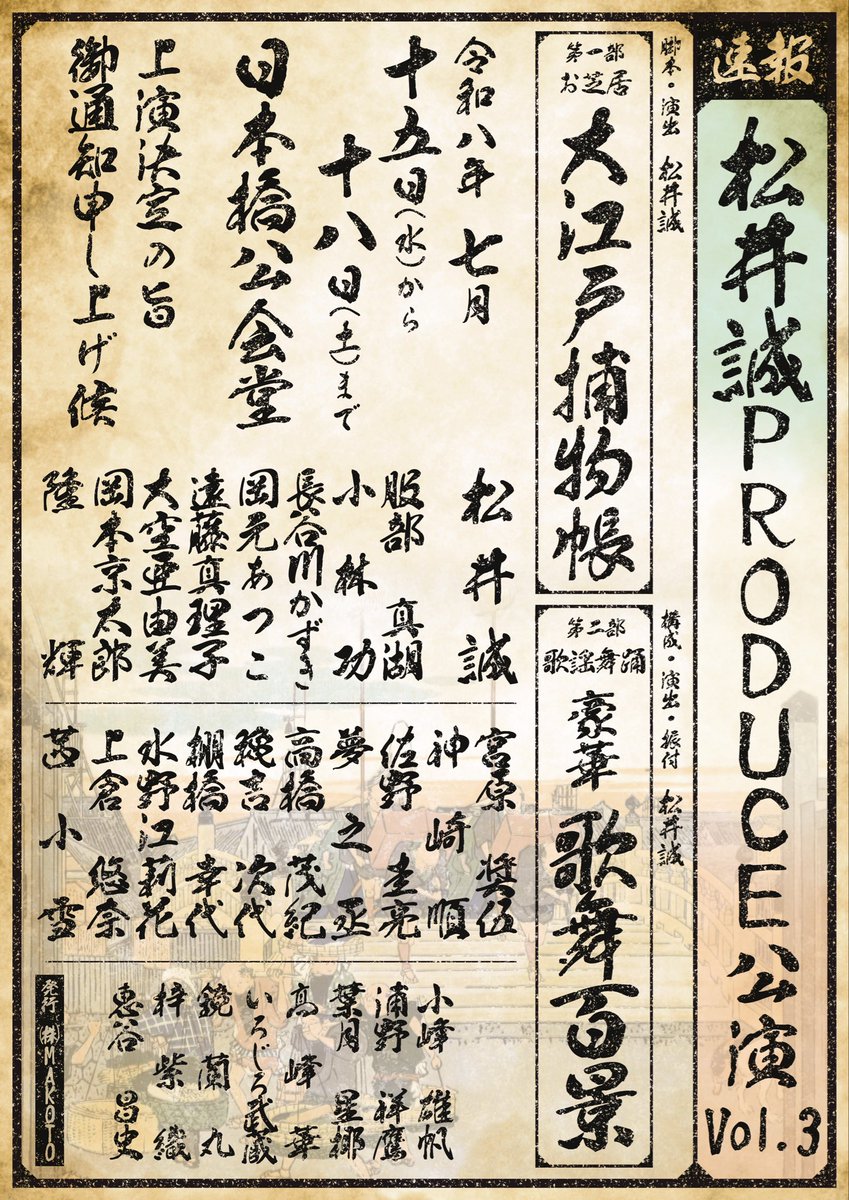 速報
松井誠PRODUCE公演 Vol.3
脚本・演出 松井誠
第一部
お芝居
大江戸捕物帳
構成・演出・振付 松井誠
第二部
歌謡舞踊
豪華 歌舞百景
令和八年 七月
十五日(水)から
十八日(土)まで
日本橋公会堂
上演決定の旨
御通知申し上げ候
松井誠
服部真湖
小林功
長谷川かずき
岡元あつこ
遠藤真理子
大空亜由美
岡本京太郎
隆輝
宮原奨伍
神崎順
佐野圭亮
夢之丞
高橋茂紀
穐吉次代
棚橋幸代
水野江莉花
上倉悠奈
茜小雪
小峰雄帆
浦野祥鷹
葉月星椰
高峰華
いろじろ武蔵
鏡蘭丸
梓紫織
恵谷昌史
発行 (株)MAKOTO